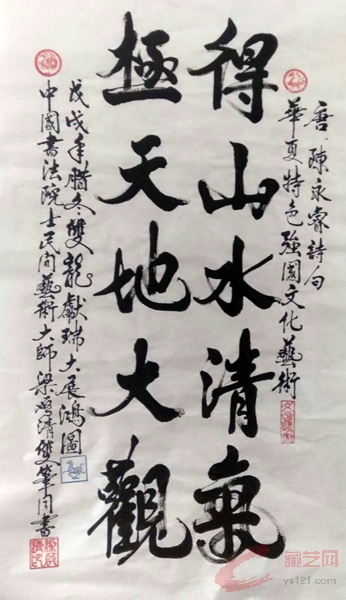 唐 陳永睿詩句
華夏特色強國文化藝術
得山水清氣
極天地大觀
戊戌年腊冬雙龍獻瑞大展鴻圖
中國書法院士民间藝術大師梁鸿清雙筆同書
藏艺网
ya121.com